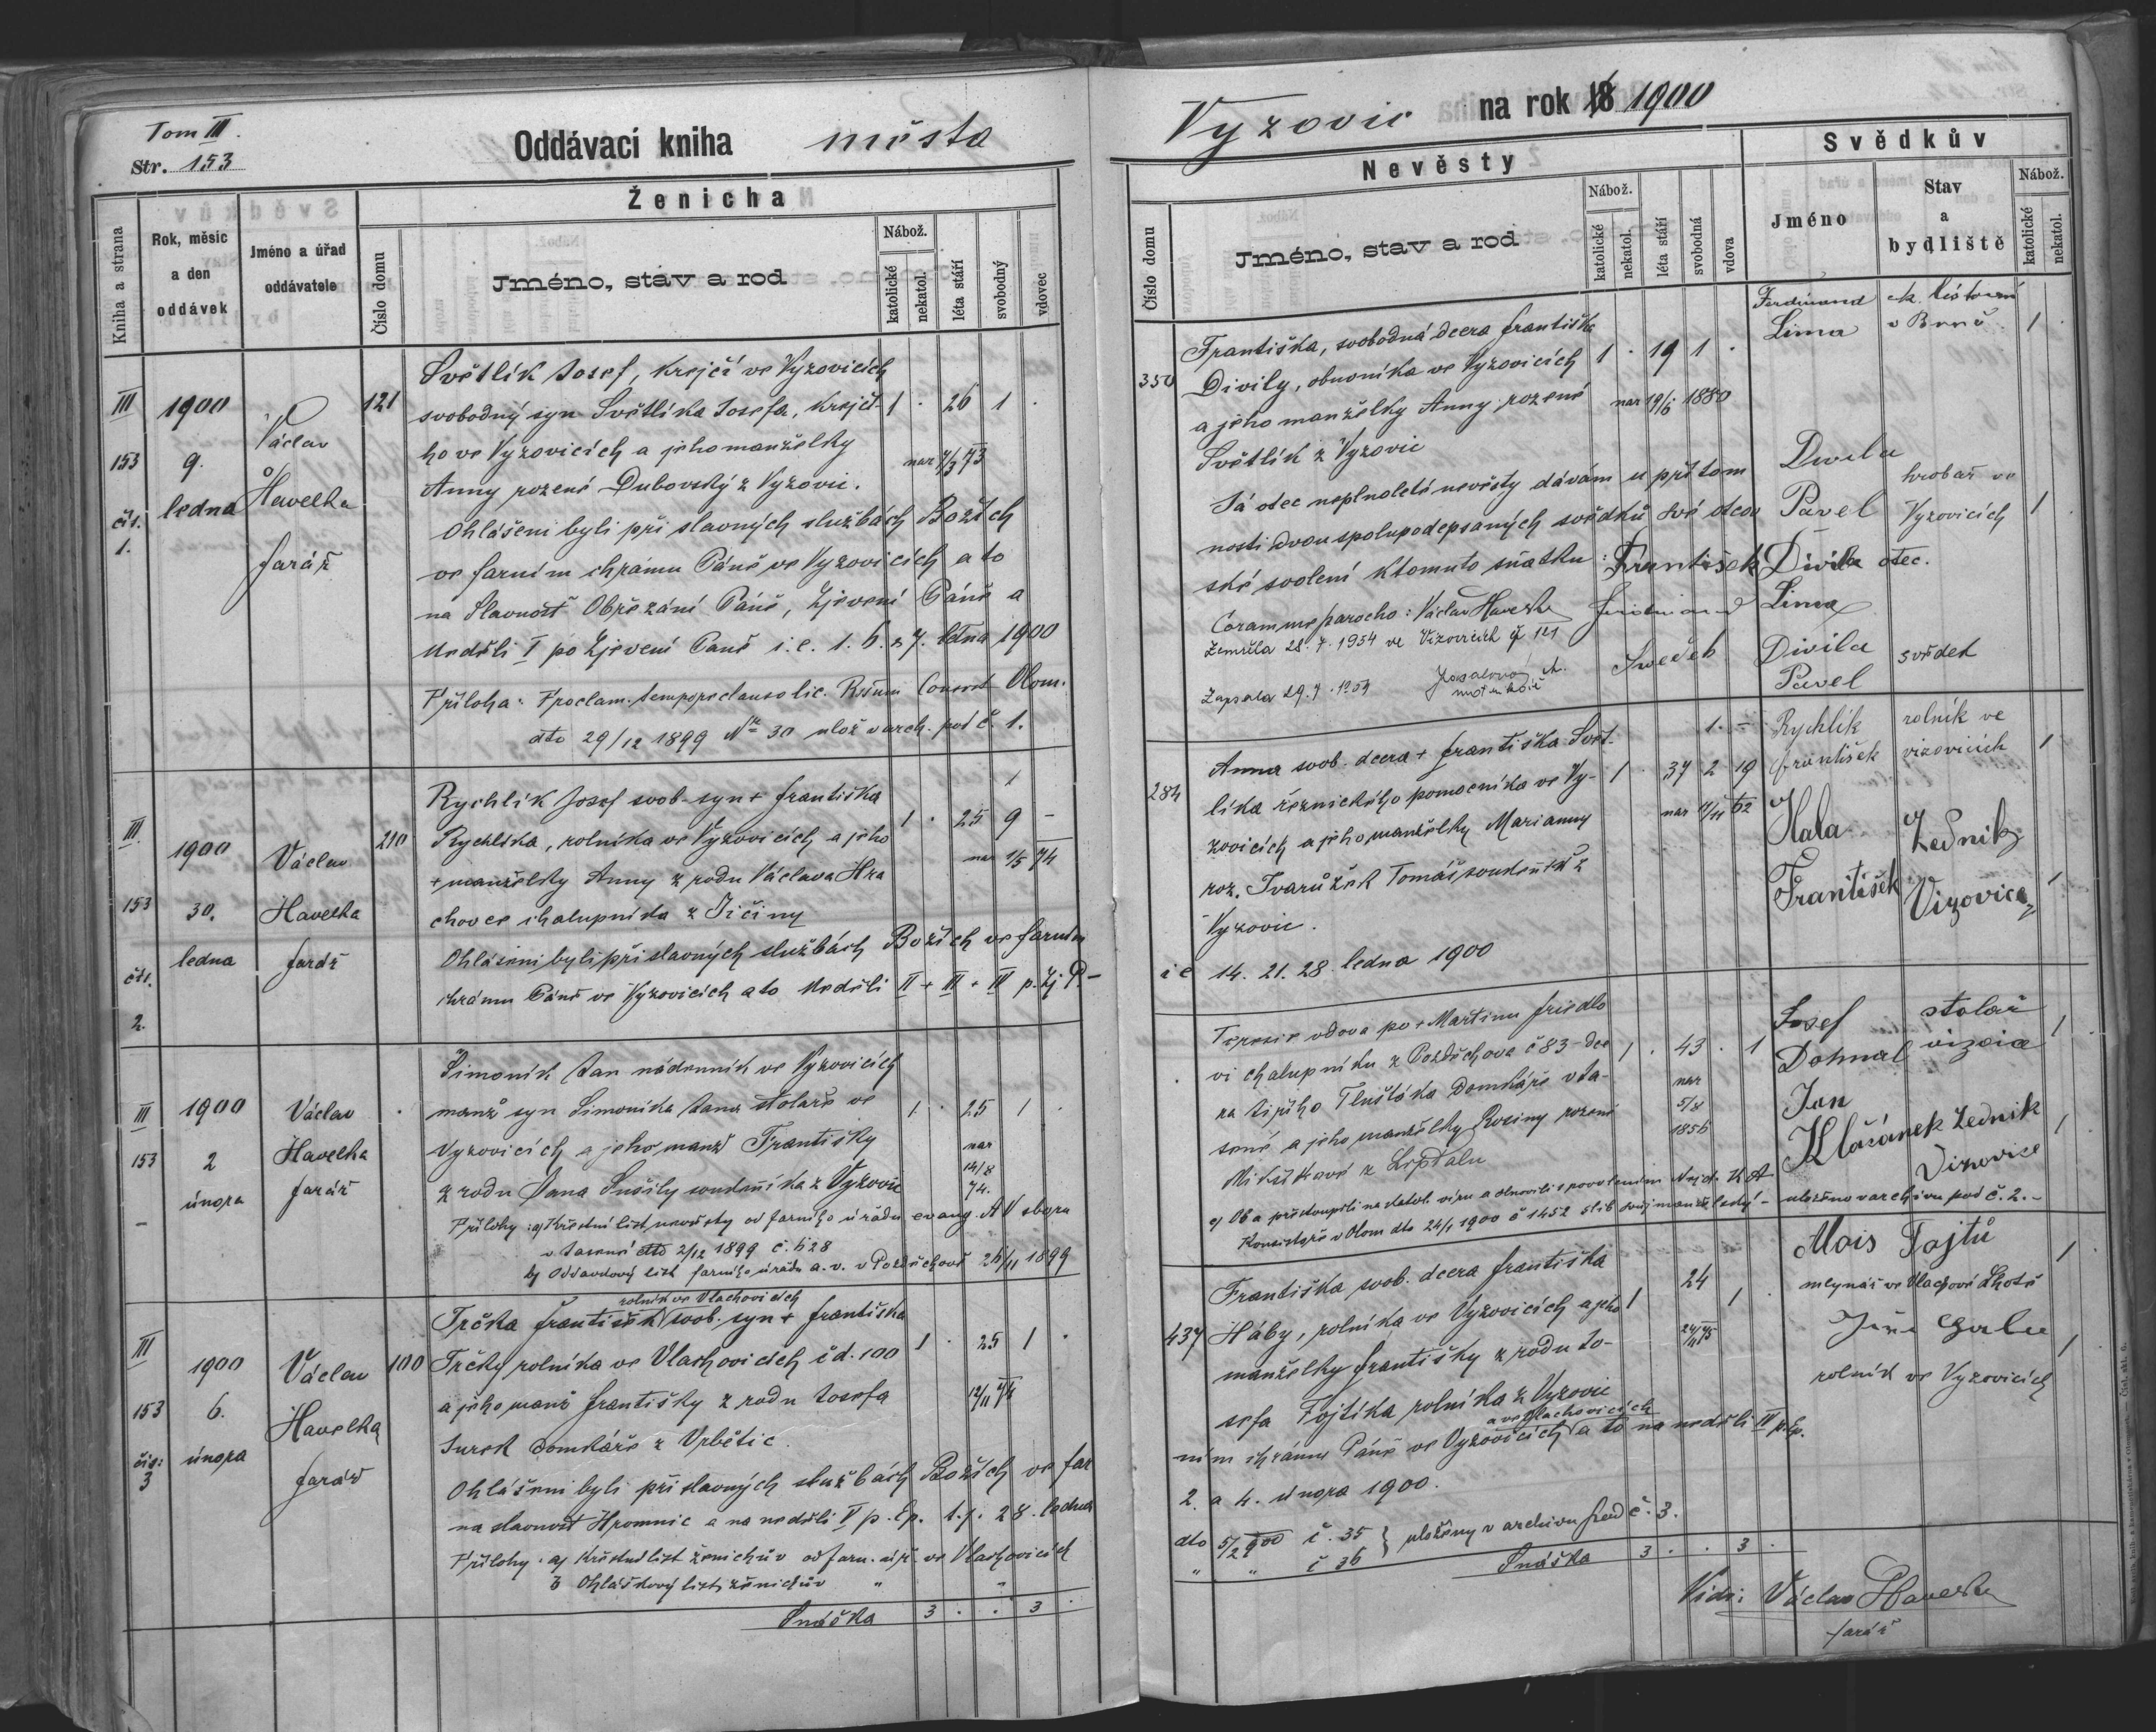 Tom III.
Str. 153
Oddávací kniha města
Kniha a strana
Rok, měsíc a den oddávek
Jméno a úřad oddávatele
Ženicha
Číslo domu
Jméno, stav a rod
Nábož.
katolické
nekatol.
léta stáří
svobodný
vdovec
III
153
čís.
1.
1900
9.
ledna
Václav
Havelka
farář
121
Světlík Josef, krejčí ve Vyzovicích
svobodný syn Světlíka Josefa, krejčí- 1 . 26 1 .
ho ve Vyzovicích a jeho manželky
Anny rozené Dubovský z Vyzovic. nar
Ohlášeni byli při slavných službách Božích
ve farním chrámu Páně ve Vyzovicích a to
na Slavnosť Obřezání Páně, Zjevení Páně a
Neděli I po Zjevení Páně i. e. 1. 6. a 7. ledna 1900
Příloha: Proclam. tempore clauso lic. Consist Olom.
dto 29/12 1899 No 30 ulož v arch. pod č. 1.
III.
153
čís.
2.
1900
30.
ledna
Václav
Havelka
farář
210
Rychlík Josef svob. syn + františka 1
Rychlíka, rolníka ve Vyzovicích a jeho 1 . 25 9 -
+ manželky Anny z rodu Václava Hra nar 1/5 74
chovce chalupníka z Jičiny
Ohlášeni byli při slavných službách Božích ve farním
chrámu Páně ve Vyzovicích a to Neděli II + III + IV p. Zj. P-
III
153
-
1900
2
února
Václav
Havelka
farář
.
Šimoník Jan nádenník ve Vyzovicích
manž syn Šimoníka Jana stolaře ve 1 . 25 1 .
Vyzovicích a jeho manž Františky nar
z rodu Jana Sušily soudeníka z Vyzovic 14/8 74.
Přílohy: a) Křestní list nevěsty od farního úřadu evang. AV sboru
v Jasené dto 2/12 1899 č. 628
b) Oddavkový list farního úřadu a. v. v Pozděchově 26/11 1899
III
153
čís:
3
1900
6.
února
Václav
Havelka
farář
100
rolník ve Vlachovicích
Trčka František svob. syn + františka
Trčky rolníka ve Vlachovicích č d. 100 1 . 25 1 .
a jeho manž františky z rodu Josefa 12/11 74
Surek domkáře z Vrbětic.
Ohlášeni byli při slavných službách Božích ve far
na slavnost Hromnic a na neděli V p. Ep. t. j. 28. ledna
Přílohy: a) Křestní list ženichův od farn. úř. ve Vlachovicích
b Ohláškový list ženichův " "
Snáška 3 . . 3 .
Vyzovic na rok 18 1900
Nevěsty
Číslo domu
Jméno, stav a rod
Nábož.
katolické
nekatol.
léta stáří
svobodná
vdova
Svědkův
Jméno
Stav
a
bydliště
Nábož.
katolické
nekatol.
350
Františka, svobodná dcera františka
Divily, obuvníka ve Vyzovicích 1 . 19 1 .
a jeho manželky Anny rozené nar 19/6 1880
Světlík z Vyzovic
Já otec neplnoleté nevěsty dávám u přítom
nosti dvou spolupodepsaných svědků své otcov
ské svolení k tomuto sňatku: František Divila otec.
Coram me parocho: Václav Havelka Ferdinand Lima
Zemřela 28. 7. 1954 ve Vizovicích č 121
Zapsala 29. 7. 1954
Svědek Divila Pavel svědek
Ferdinand
Lima
v Brně 1
Divila
Pavel
hrobař ve
Vyzovicích 1
284
Anna svob. dcera + františka Svět- 1. -
líka řeznického pomocníka ve Vy- 1 . 37 2 19
zovicích a jeho manželky Marianny nar 62
roz. Tvarůžek Tomáš z
Vyzovic.
i e 14. 21. 28. ledna 1900
Rychlík
František
rolník ve
vizovicích 1
Hala
František
Zedník
Vizovice 1
Teresie vdova po + Martinu friedlo
vi chalupníku z Pozděchova č 83 - dce 1 . 43 . 1
ra Jiřího Tluštáka domkáře v Ja- nar
sené a jeho manželky Rosiny rozené 5/8
Mikuškové z Lipdalu 1856
c) Oba přestoupili na katol. víru a obnovili s povolením Nejd. K A
Konsistoře v Olom dto 24/1 1900 č 1452 slib svůj manželský - uloženo v archivu pod č. 2. -
Josef
Dohnal
stolař
vizovice 1
Jan
Klásánek Zedník
Vizovice 1
437
Františka svob. dcera františka 24
Háby, rolníka ve Vyzovicích a jeho 1 1 .
manželky františky z rodu Jo-
sefa Fojtíka, rolníka z Vyzovic
a ve Vlachovicích
ním chrámu Páně ve Vyzovicích a to na neděli IV p. Ep.
2. a 4. února 1900.
dto 5/2 900 č. 35 } uloženy v archivu pod č. 3.
" " č 36
Snáška 3 . . 3 .
Alois Fojtů
mlynář ve Vlachově Lhotě 1
Jiří
rolník ve Vyzovicích 1
Vidi: Václav Havelka
farář